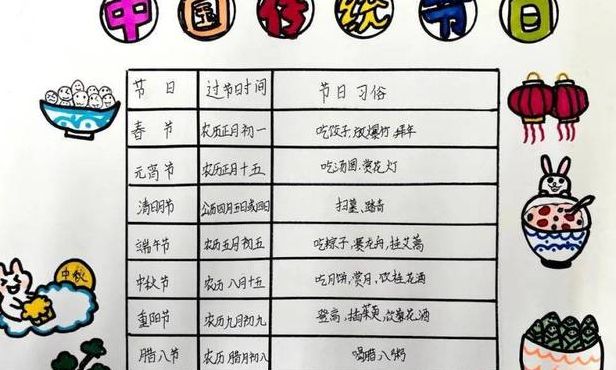 中国传统节日
节 日 过节时间 节日习俗
春 节 农历正月初一 吃饺子,放爆竹,拜年
元宵节 农历正月十五 吃汤圆,赏花灯
清明节 公历四月五日或四日 扫墓、踏青
端午节 农历五月初五 吃粽子,赛龙舟,挂艾蒿
中秋节 农历八月十五 吃月饼,赏月,饮桂花酒
重阳节 农历九月初九 登高,插茱萸,饮菊花酒
腊八节 农历腊月初八 喝腊八粥
中秋